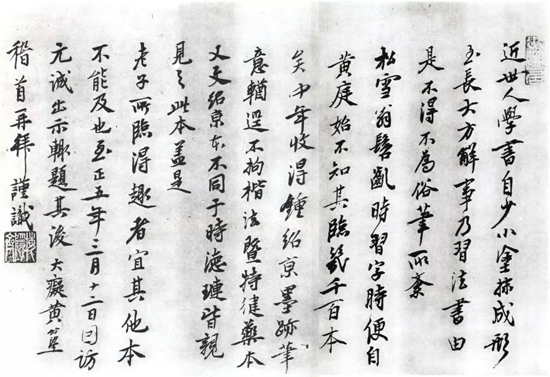 近世人學書自少小塗抹成形
至長大方解事乃習法書由
是不得不為俗筆所紊
松雪翁髫齔時習字時便自
黃庭始不知其臨幾千百本
矣中年收得鍾紹京墨跡筆
意不拘楷法暨特健藥本
又更紹京本不同于時德璉皆親
見之此本盖是
老子所臨得趣者宜其他本
不能及也至正五年三月十二日因訪
元誠出示輒題其後大癡黃公望
稽首再拜謹識